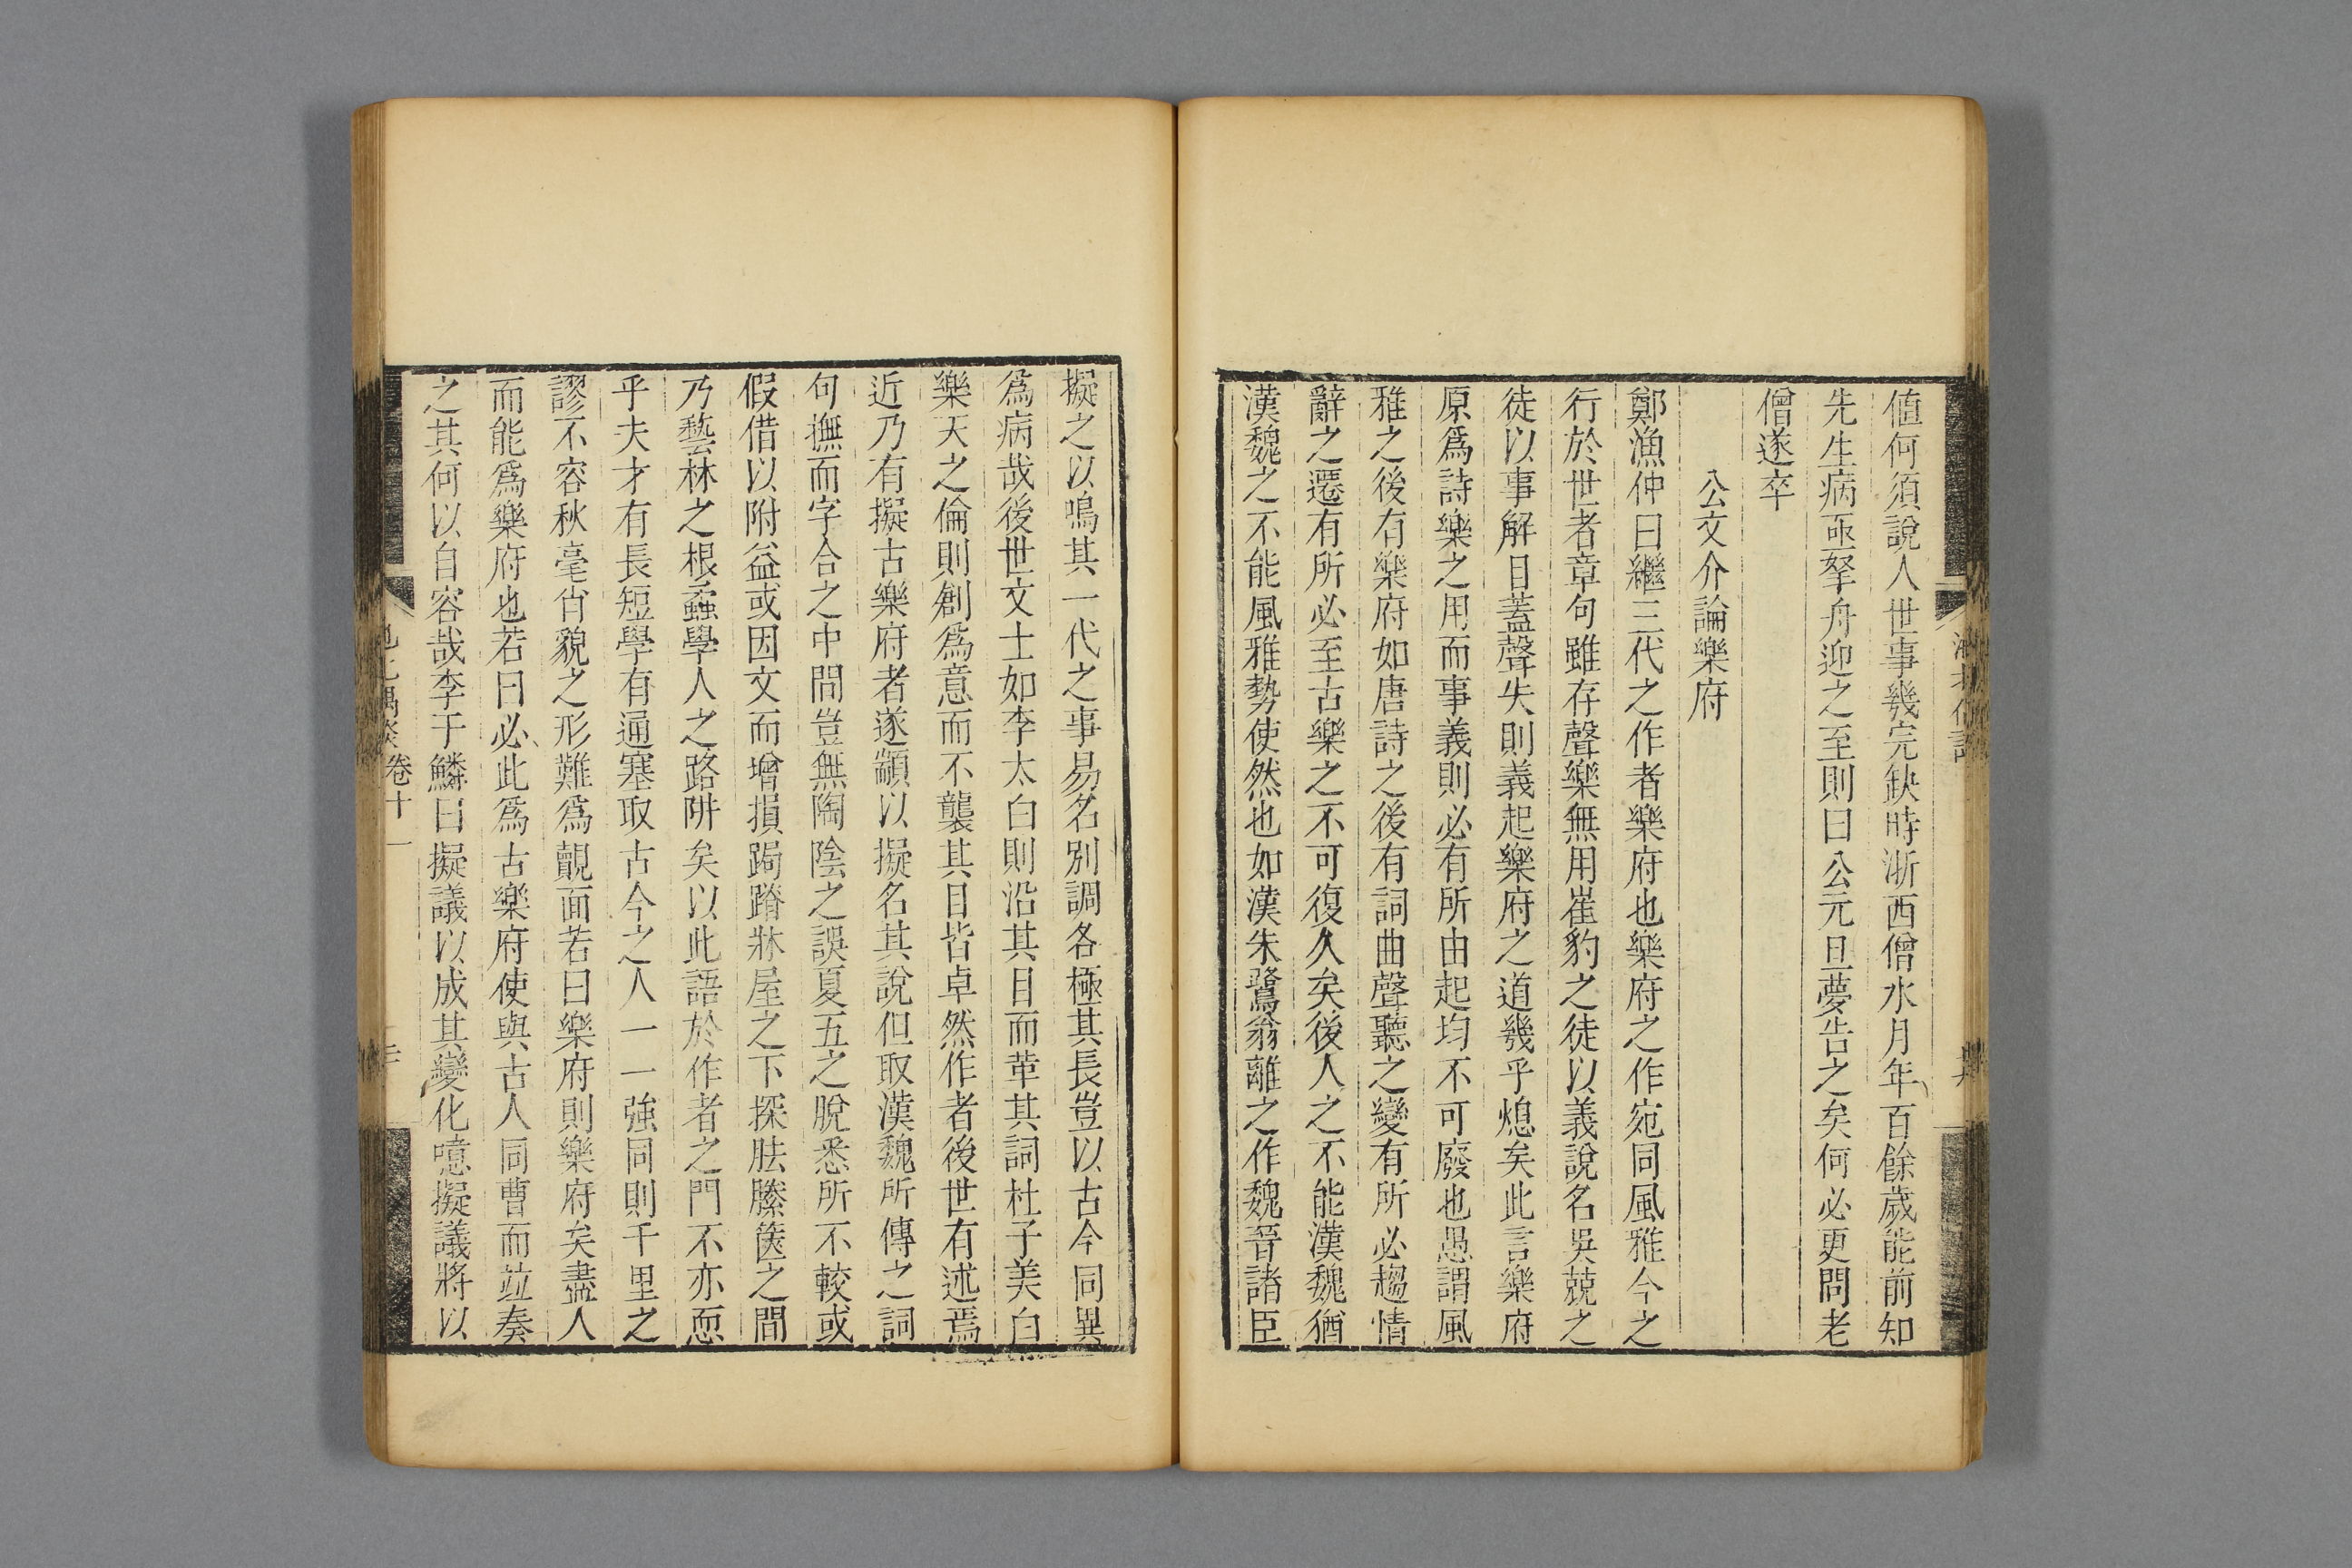 值何須說人世事幾完缺時浙西僧水月年百餘歲能前知
先生病亟拏舟迎之至則曰公元旦夢告之矣何必更問老
僧遂卒
公文介論樂府
鄭漁仲曰繼三代之作者樂府也樂府之作宛同風雅今之
行於世者章句雖存聲樂無用崔豹之徒以義說名吳兢之
徒以事解目蓋聲失則義起樂府之道幾乎熄矣此言樂府
原爲詩樂之用而事義則必有所由起均不可廢也愚謂風
雅之後有樂府如唐詩之後有詞曲聲聽之變有所必趨情
辭之遷有所必至古樂之不可復久矣後人之不能漢魏猶
漢魏之不能風雅勢使然也如漢朱鷺翁離之作魏晉諸臣
擬之以鳴其一代之事易名別調各極其長豈以古今同異
爲病哉後世文士如李太白則沿其目而革其詞杜子美白
樂天之倫則創爲意而不襲其目皆卓然作者後世有述焉
近乃有擬古樂府者遂顓以擬名其說但取漢魏所傳之詞
句撫而字合之中間豈無陶陰之誤夏五之脫悉所不較或
假借以附益或因文而增損跼蹐牀屋之下探胠縢篋之間
乃藝林之根蝨學人之路阱矣以此語於作者之門不亦恧
乎夫才有長短學有通塞取古今之人一一強同則千里之
謬不容秋毫肖貌之形難爲覿面若曰樂府則樂府矣盡人
而能爲樂府也若曰必此爲古樂府使與古人同曹而竝奏
之其何以自容哉李于鱗曰擬議以成其變化噫擬議將以
卷十一